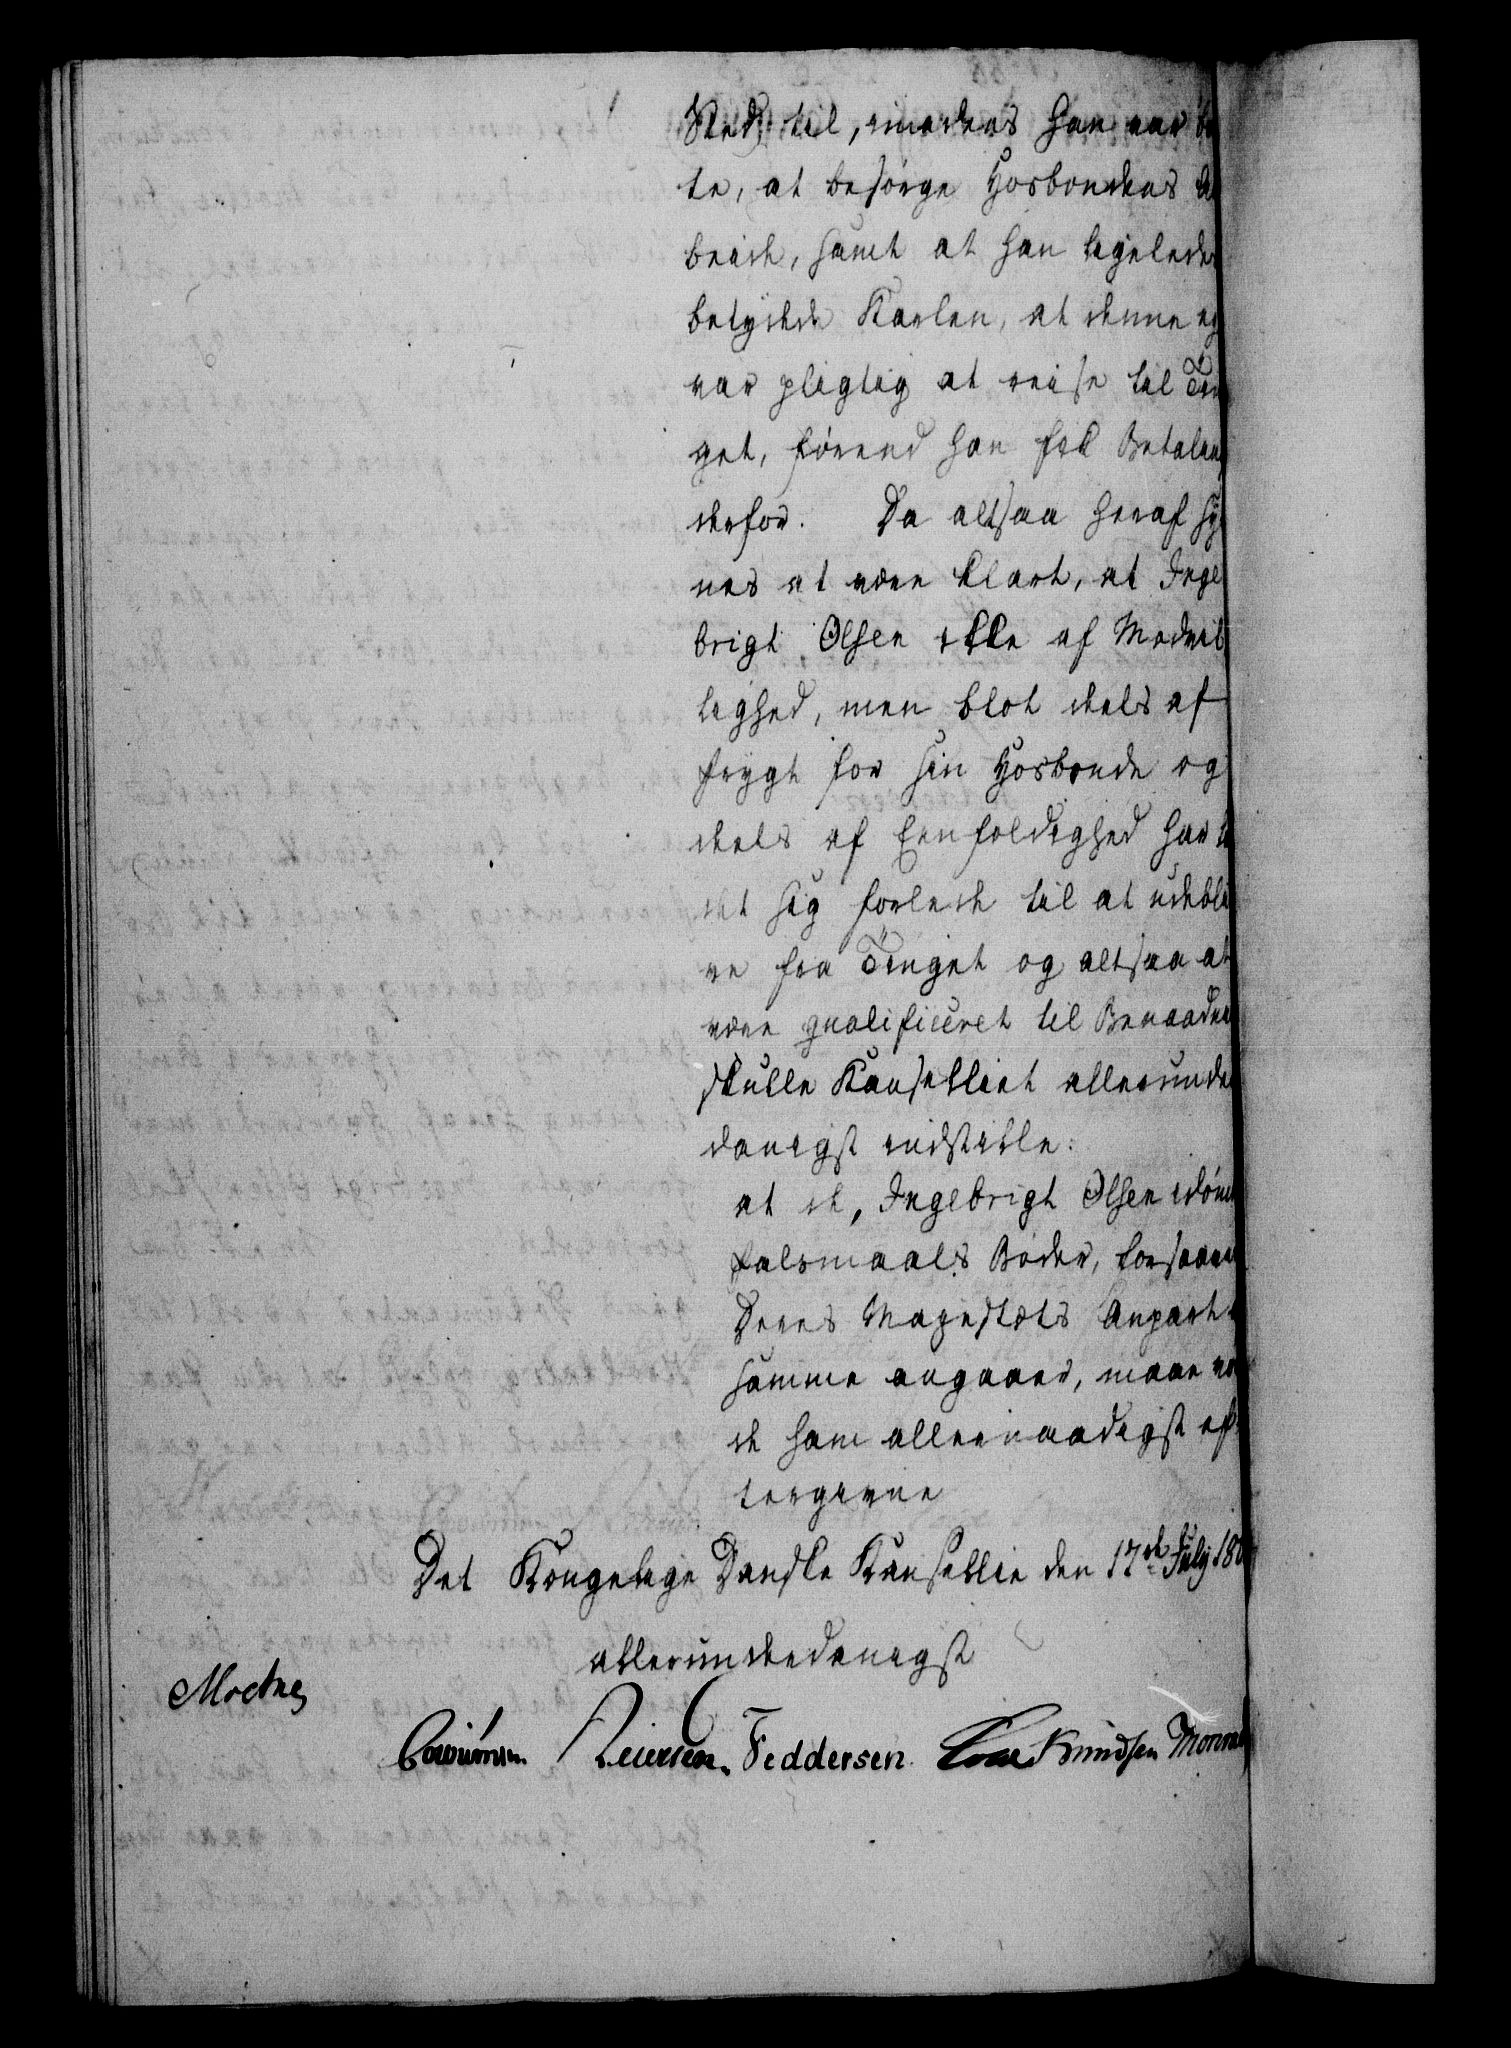 Sted til, imedens han var bor
te, at besørge Hosbondens Ar
beide, samt at han ligeledes
betydede Karlen, at denne ey
var pligtig at reise til Tin
get, førend han fik Betaling
derfor. Da altsaa heraf sy
nes at være klart, at Inge
brigt Olsen ikke af Modvil
lighed, men blot deels af
frygt for sin Hosbonde og
deels af Eenfoldighed har la
det sig forlede til at udebli
ve fra Tinget og altsaa at
være qvalificeret til Benaadn
skulle Kanselliet allerunder
danigst indstille:
at de, Ingebrigt Olsen idømt
falsmaals Bøder, forsaavidt
Deres Majestæts Anpart
samme angaaer, maae vor
de ham allernaadigst ef
tergivne
Det Kongelige Danske Kansellie den 17de July 18
allerunderdanigst
Moltke
Feddersen. Knudsen Monrad